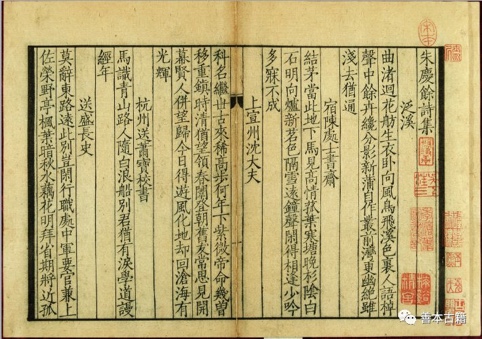 朱慶餘詩集
泛溪
曲渚迴花舫生衣卧向風鳥飛溪色裏人語棹
聲中餘卉纔分影新蒲自作叢前灣更幽絶雖
淺去猶通
宿陳處士書齋
結茅當此地下馬見高情菰葉寒塘晚杉陰白
石明向爐新茗色隔雪遠鐘聲閑得相逢少吟
多寐不成
上宣州沈大夫
科名繼世古來稀高步何年下紫微帝命幾曾
移重鎮時清猶望領春闈登朝舊友常思見開
幕賢人併望歸今日得遊風化地却回滄海有
光輝
杭州送蕭寶校書
馬識青山路人隨白浪船別君猶有淚學道謾
經年
送盛長史
莫辭東路遠此别豈閑行職處中軍要官兼上
佐榮野亭楓葉暗秋水藕花明拜省期將近孤
善本古籍